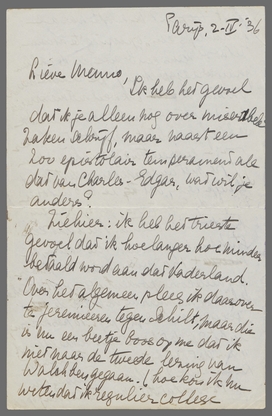 Parijs, 2-IV-'36
Lieve Menno,
Ik heb het gevoel
dat ik je alleen nog over
zaken schrijf, maar naast een
zoo epistolair temperament als
dat van Charles-Edgar, wat wil je
anders?
Ziehier: ik heb het trieste
gevoel dat ik hoe langer hoe minder
betaald word aan dat Vaderland.
Over het algemeen pleeg ik daarover
te jeremieeren tegen Schilt, maar die
is nu een beetje boos op me dat ik
niet naar de tweede lezing van
gegaan. (hoe kon ik nu
weten dat ik regulier college